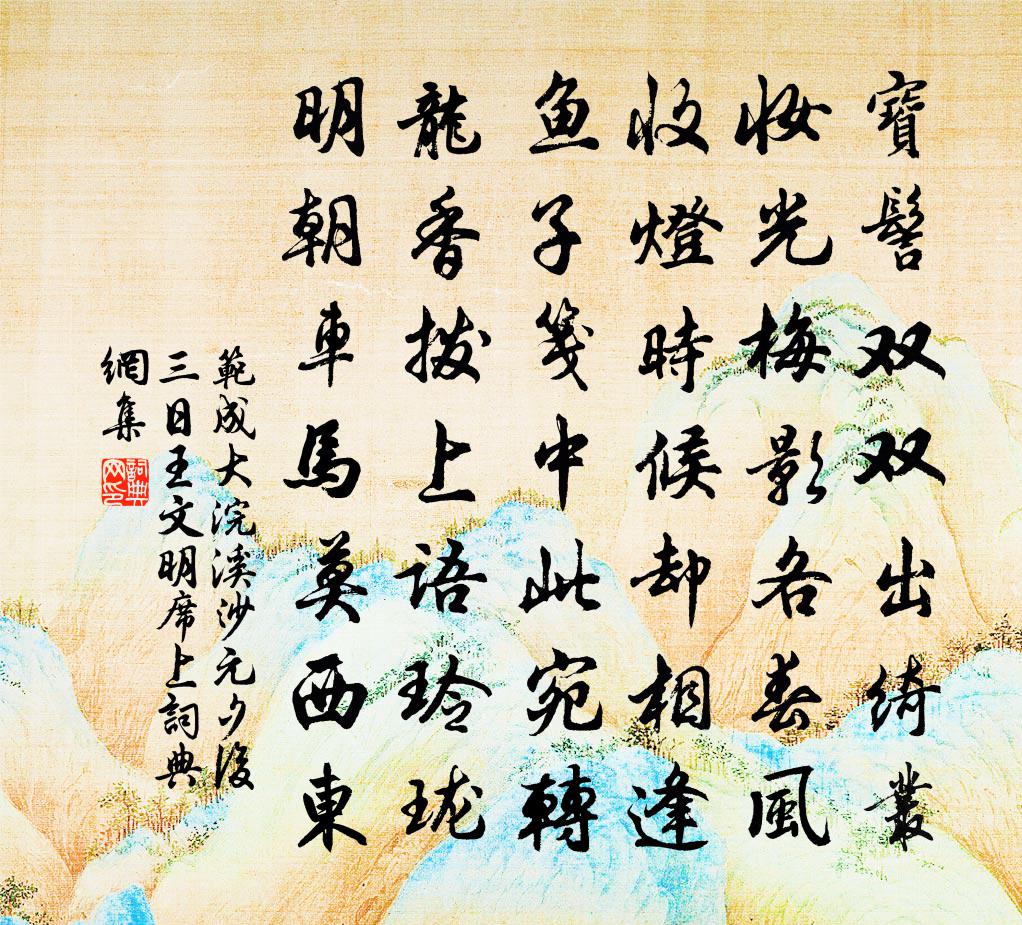 寶髻双双出綺叢
妝光梅影各春風
收燈時候却相逢
魚子箋中此宛轉
龍香撥上語玲珑
明朝車馬莫西東
範成大浣溪沙元夕後
三日王文明席上詞典
網集
詞典网印